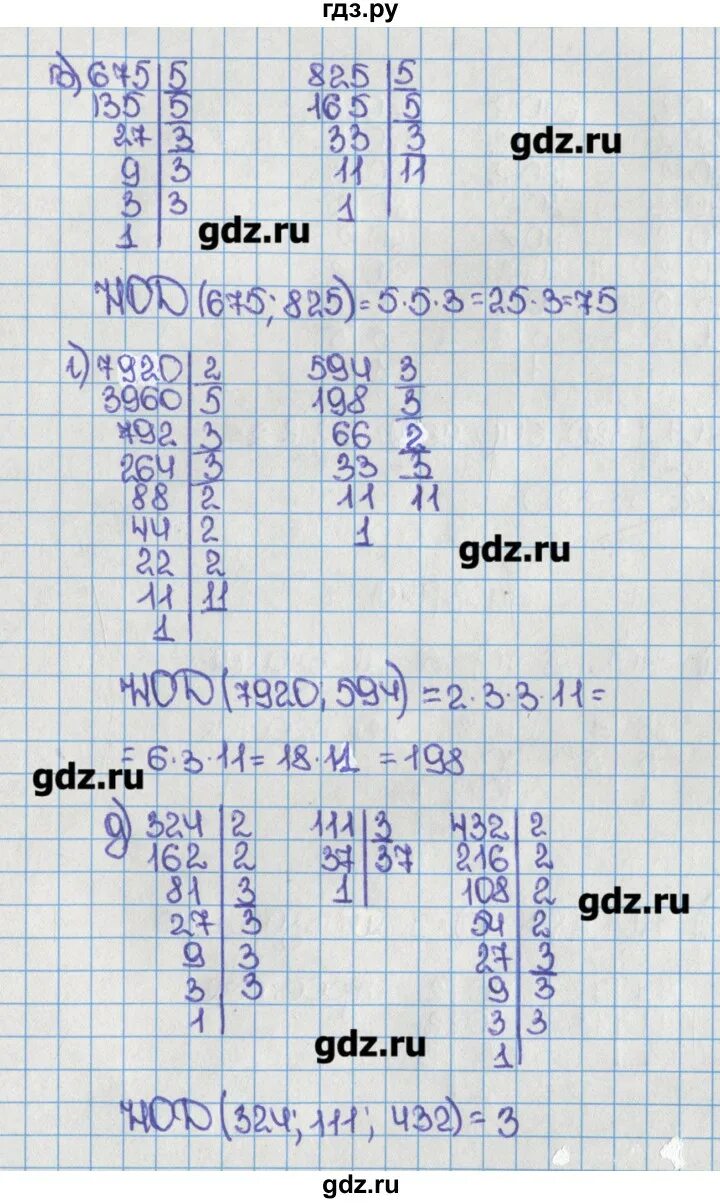 гдз.ру
в) 675 | 5 825 | 5
135 | 5 165 | 5
27 | 3 33 | 3
gdz.ru
9 | 3 11 | 11
3 | 3 1
gdz.ru
1
НОД (675; 825) = 5·5·3 = 25·3 = 75
г) 7920 | 2 594 | 3
3960 | 5 198 | 3
792 | 3 66 | 2
264 | 3 33 | 3
88 | 2 11 | 11
44 | 2 1
gdz.ru
22 | 2
11 | 11
1
НОД (7920, 594) = 2·3·3·11 =
= 6·3·11 = 18·11 = 198
gdz.ru
д) 324 | 2 111 | 3 432 | 2
162 | 2 37 | 37 216 | 2
81 | 3 1 108 | 2
gdz.ru
27 | 3 54 | 2
9 | 3 27 | 3
3 | 3 9 | 3
1 3 | 3
gdz.ru
1
НОД (324; 111; 432) = 3
gdz.ru